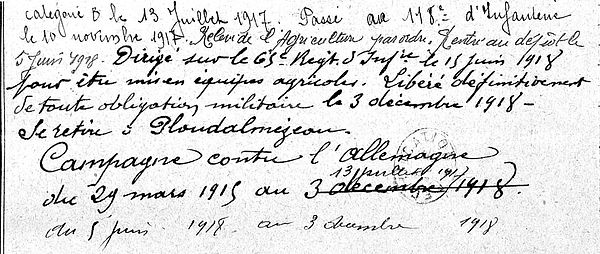 catégorie B le 13 Juillet 1917. Passé au 118e d'Infanterie
le 10 novembre 1917. Relevé de l'Agriculture par ordre. Rentré au dépôt le
5 Juin 1918. Dirigé sur le 65e Regt. d'Infie le 15 juin 1918
pour être mis en équipes agricoles. Libéré définitivement
de toute obligation militaire le 3 décembre 1918 -
Se retire à Ploudalmézeau.
Campagne contre l'Allemagne
13 juillet 1917
du 29 mars 1915 au 3 décembre 1918.
du 5 juin 1918 au 3 décembre 1918